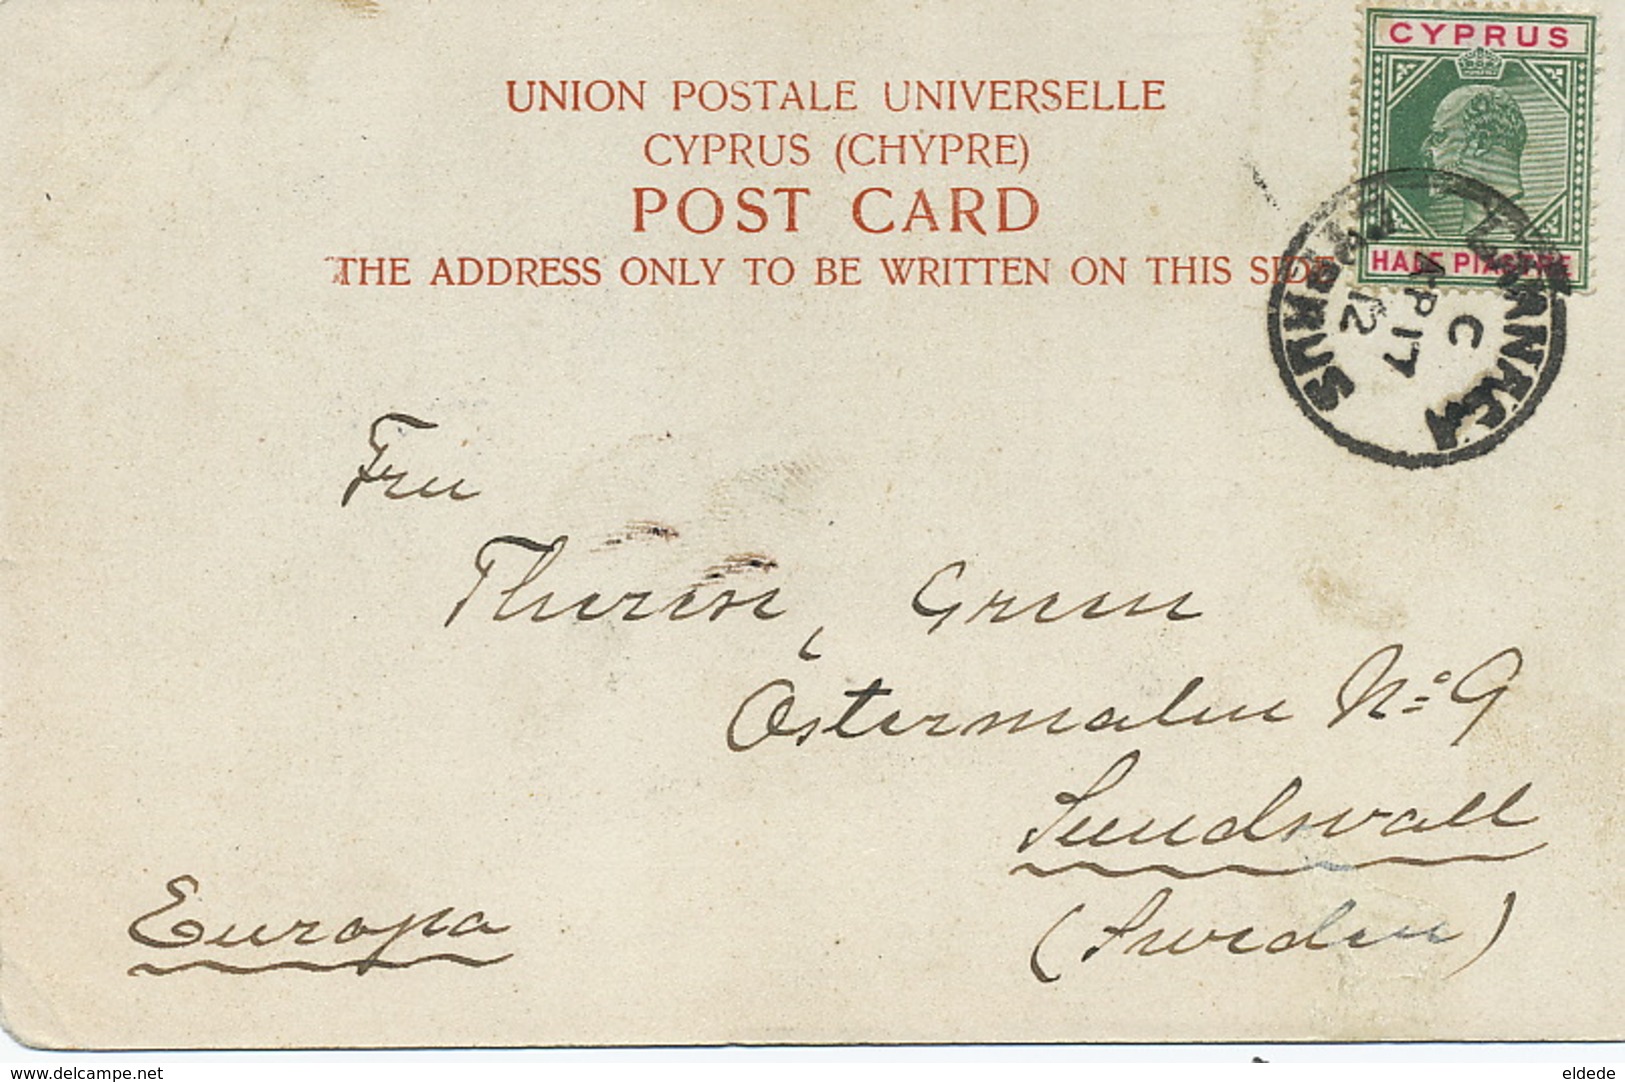 CYPRUS
HALF PIASTRE
UNION POSTALE UNIVERSELLE
CYPRUS (CHYPRE)
POST CARD
THE ADDRESS ONLY TO BE WRITTEN ON THIS SIDE
LARNACA
C
AP 17
12
CYPRUS
Fru
Therese Green
Östermalm No: 9
Sundsvall
(Sweden)
Europa
www.delcampe.net
eldede